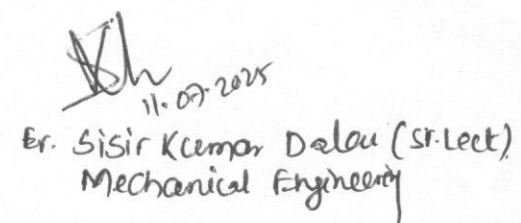 11.07.2025
Er. Sisir Kumar Dalau (Sr. Lect)
Mechanical Engineering